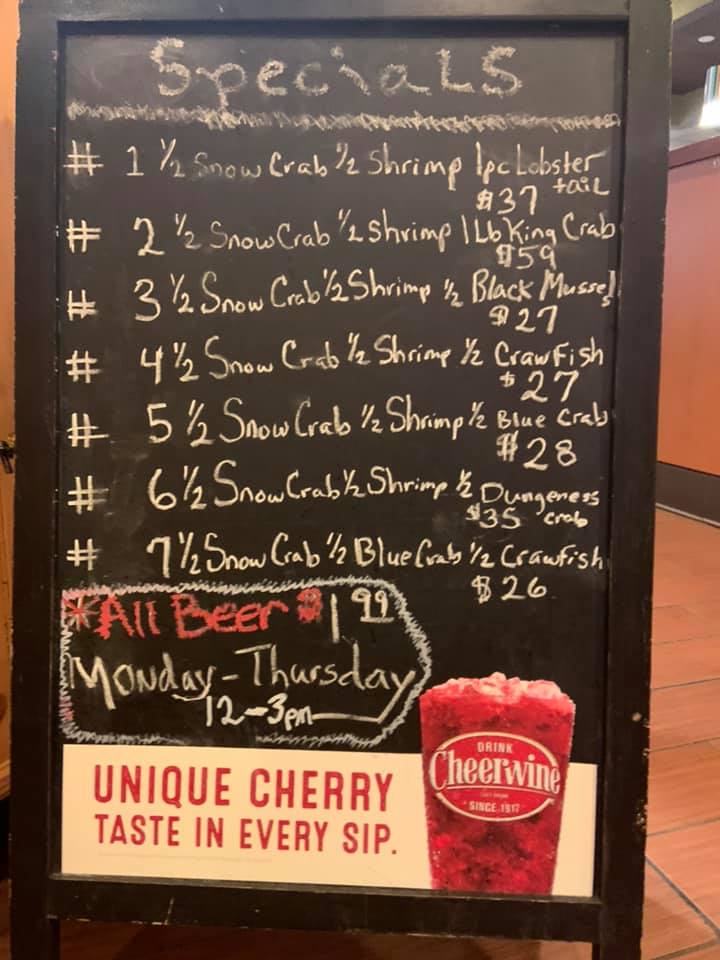 Specials
# 1 ½ Snow Crab ½ Shrimp 1pc Lobster tail
$37
# 2 ½ Snow Crab ½ Shrimp 1 Lb King Crab
$59
# 3 ½ Snow Crab ½ Shrimp ½ Black Mussel
$27
# 4 ½ Snow Crab ½ Shrimp ½ CrawFish
$27
# 5 ½ Snow Crab ½ Shrimp ½ Blue Crab
$28
# 6 ½ Snow Crab ½ Shrimp ½ Dungeness crab
$35
# 7 ½ Snow Crab ½ Blue Crab ½ Crawfish
$26
*All Beer $1.99
Monday - Thursday
12-3pm
UNIQUE CHERRY
TASTE IN EVERY SIP.
DRINK
Cheerwine
SINCE 1917